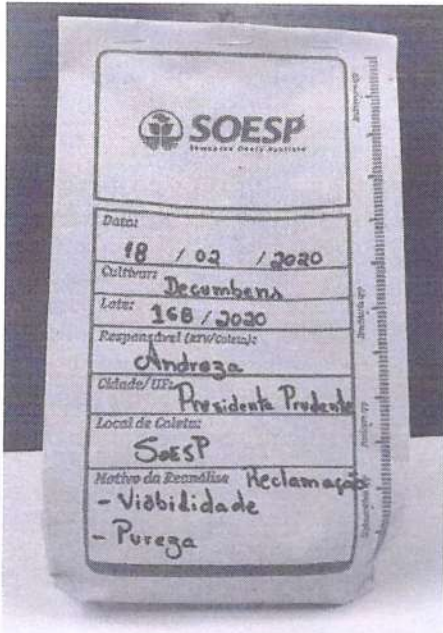 SOESP
Sementes Oeste Paulista
Data:
18 / 02 / 2020
Cultivar:
Decumbens
Lote: 168 / 2020
Responsável (RTV/Coleta):
Andreza
Cidade/UF:
Presidente Prudente
Local de Coleta:
SoesP
Motivo da Reanálise Reclamação
- Viabilidade
- Pureza